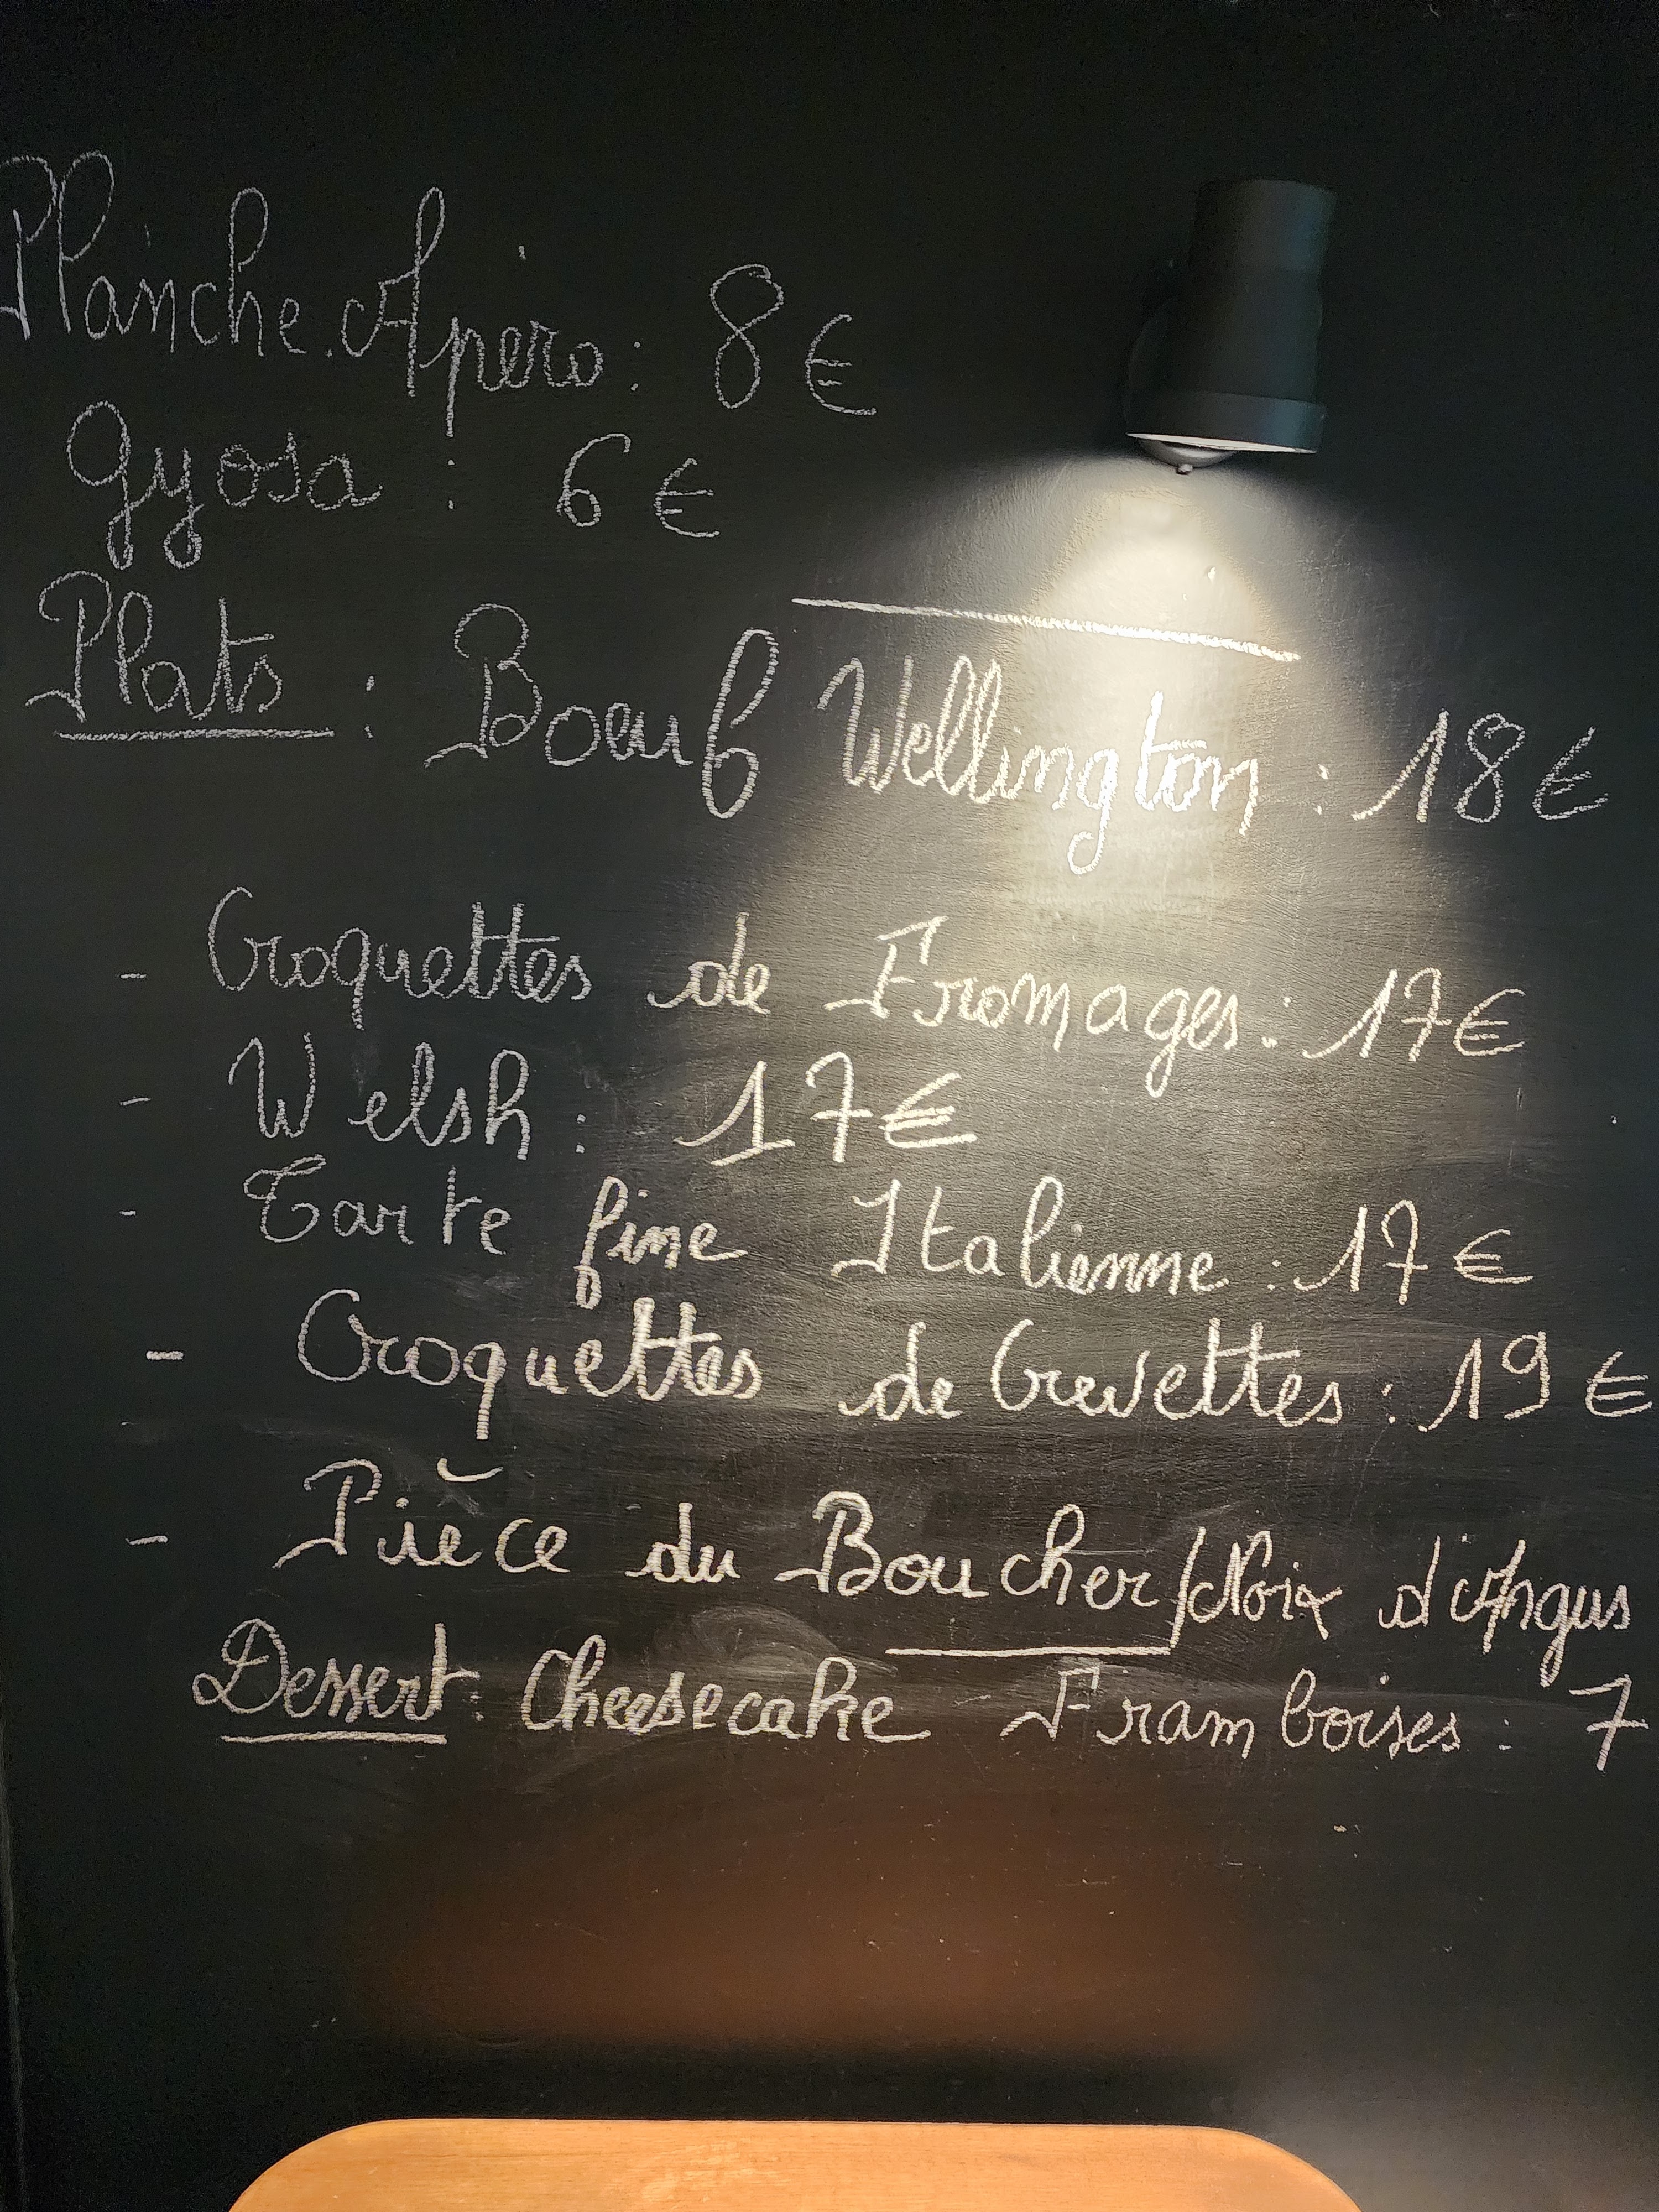 Planche Apéro : 8€
Gyosa : 6€
Plats : Boeuf Wellington : 18€
- Croquettes de Fromages : 17€
- Welsh : 17€
- Tarte fine Italienne : 17€
- Croquettes de Crevettes : 19€
- Pièce du Boucher/Noix d'Angus
Dessert : Cheesecake Framboises : 7